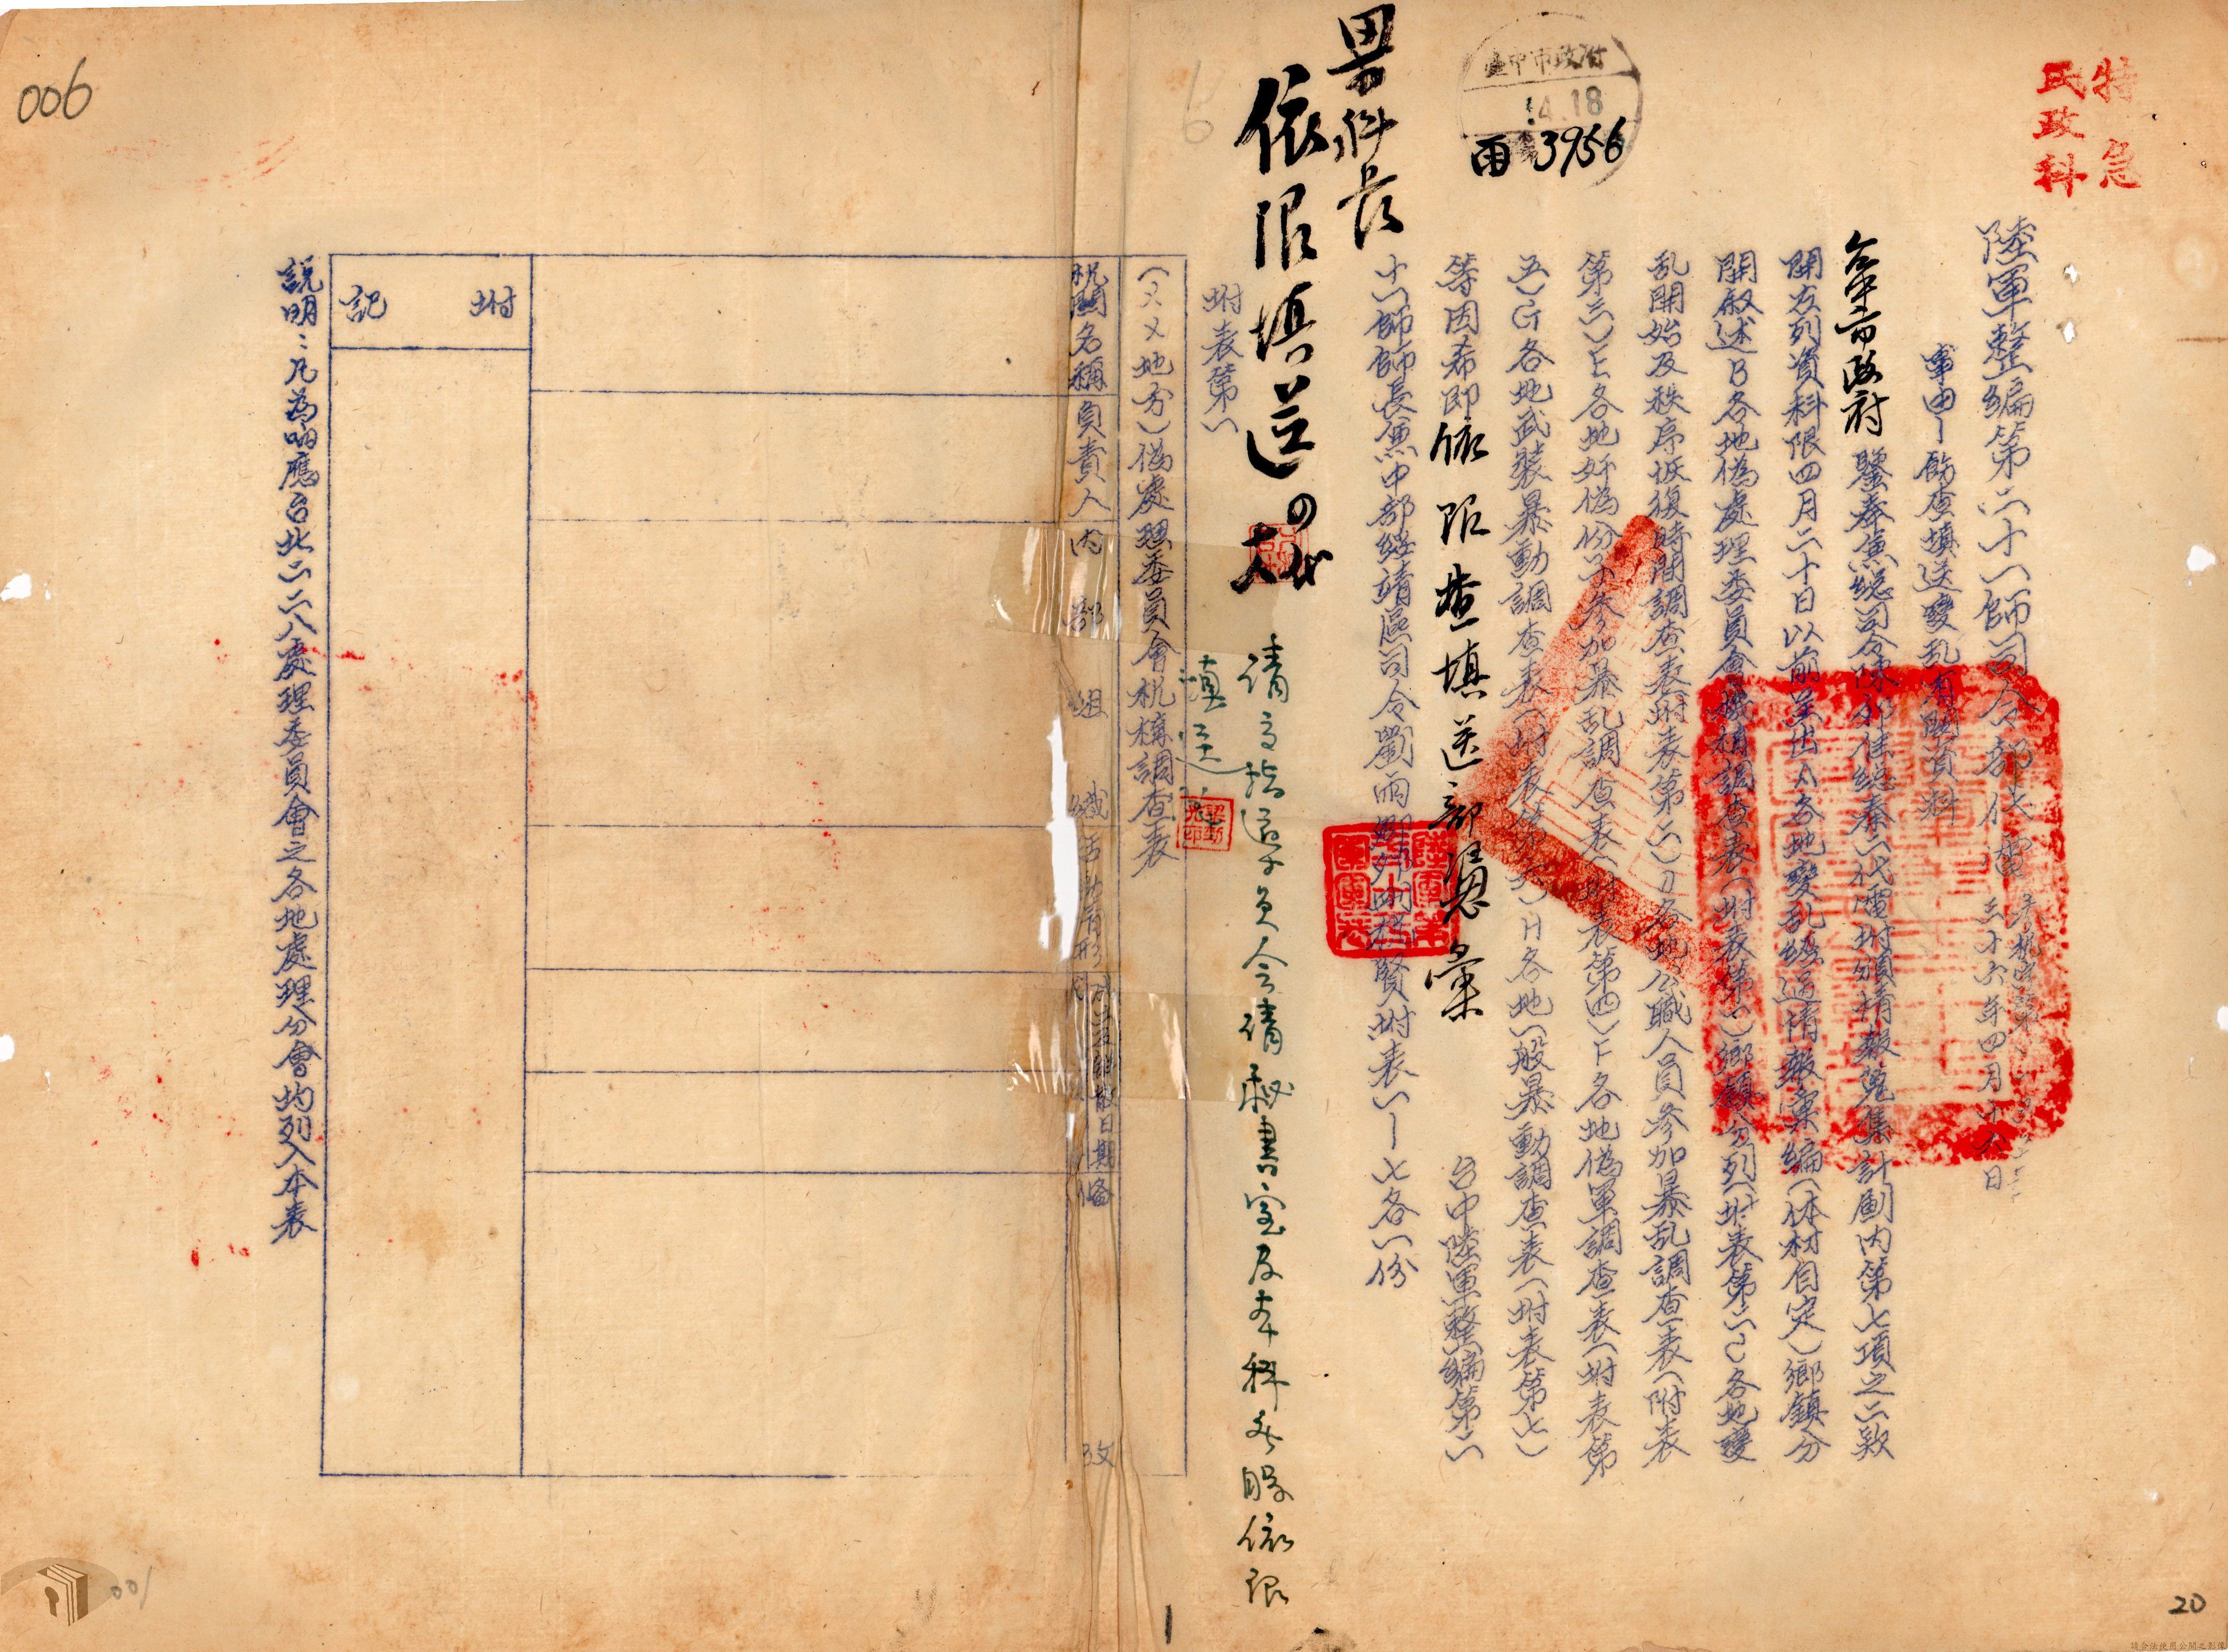 特急
民政科
陸軍整編第二十一師司令部代電
三十六年四月十六日
事由—飭查填送變乱有關資料
台中市政府
鑒奉兼總司令陳 代電附頒情報蒐集計劃内第七項之二欵
開左列資料限四月二十日以前呈出A各地變乱經過情報彙編(体材自定)鄉鎮分
開敘述B各地偽處理委員會機構調查表(附表第一)鄉鎮分列(附表第二)C各地變
乱開始及秩序恢復時間調查表(附表第二)D各地公職人員參加暴乱調查表(附表
第三)E各地奸偽份子參加暴乱調查表(附表第四)F各地偽軍調查表(附表第
五)G各地武裝暴動調查表(附表第六)H各地一般暴動調查表(附表第七)
等因希即依限查填送部憑彙
台中陸軍整編第二
十一師師長兼中部綏靖區司令劉雨卿 附表一—七各一份
臺中市政府
4.18
3956
科長
依限填送
代
請 秘書室及本科各股依限
填送
附表第一
(××地方)偽處理委員會机構調查表
机関名稱
負責人
内部組織
活動情形
成立及解散日期
備攷
附記
説明:凡為响應台北二二八處理委員會之各地處理分會均列入本表
006
001
1
20